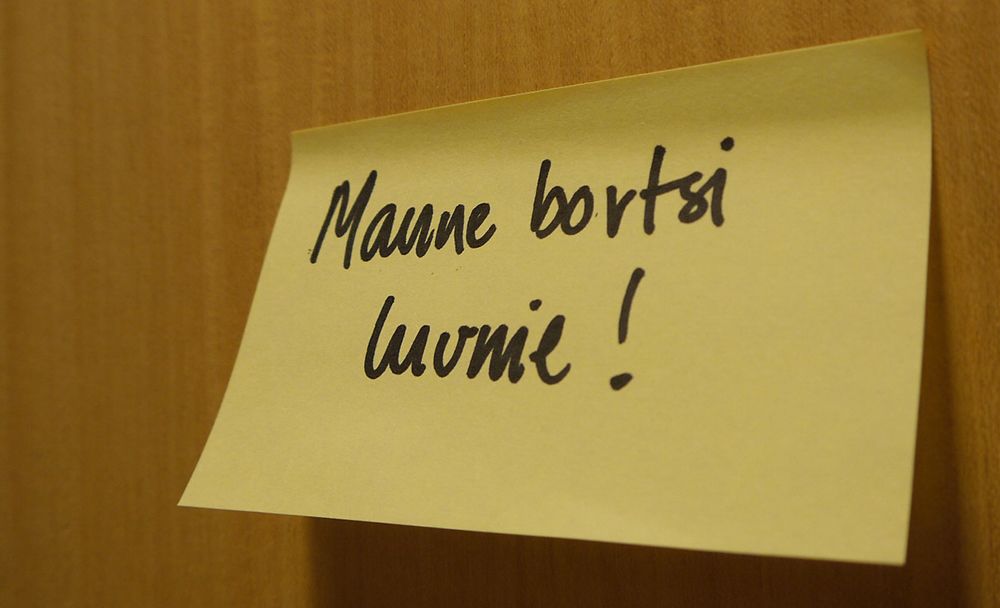 Maune bortsi
luvnie!